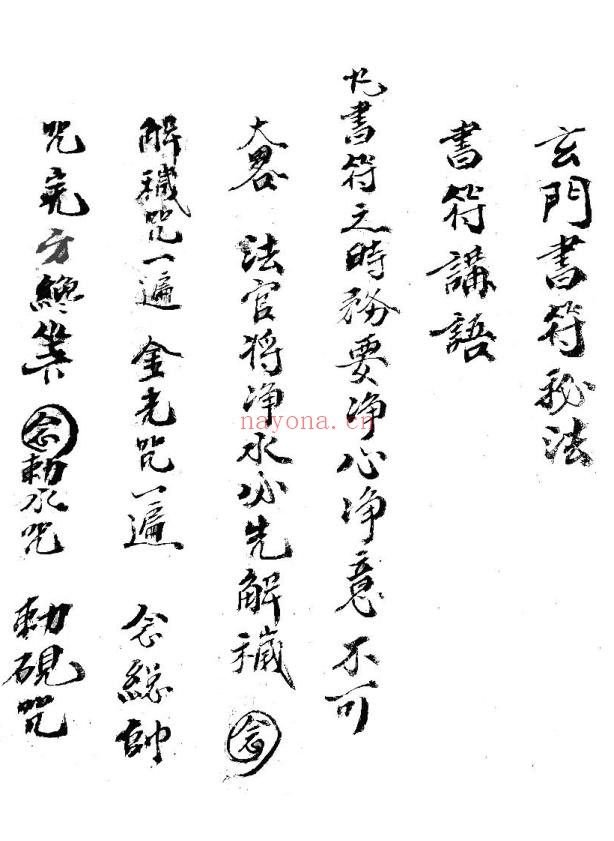 玄門書符秘法
書符講語
凡書符之時務要净心净意不可
大畧 法官将净水必先解穢 念
解穢咒一遍 金光咒一遍 念総帥
咒完方纔 念勅水咒 勅硯咒
nayona.cn